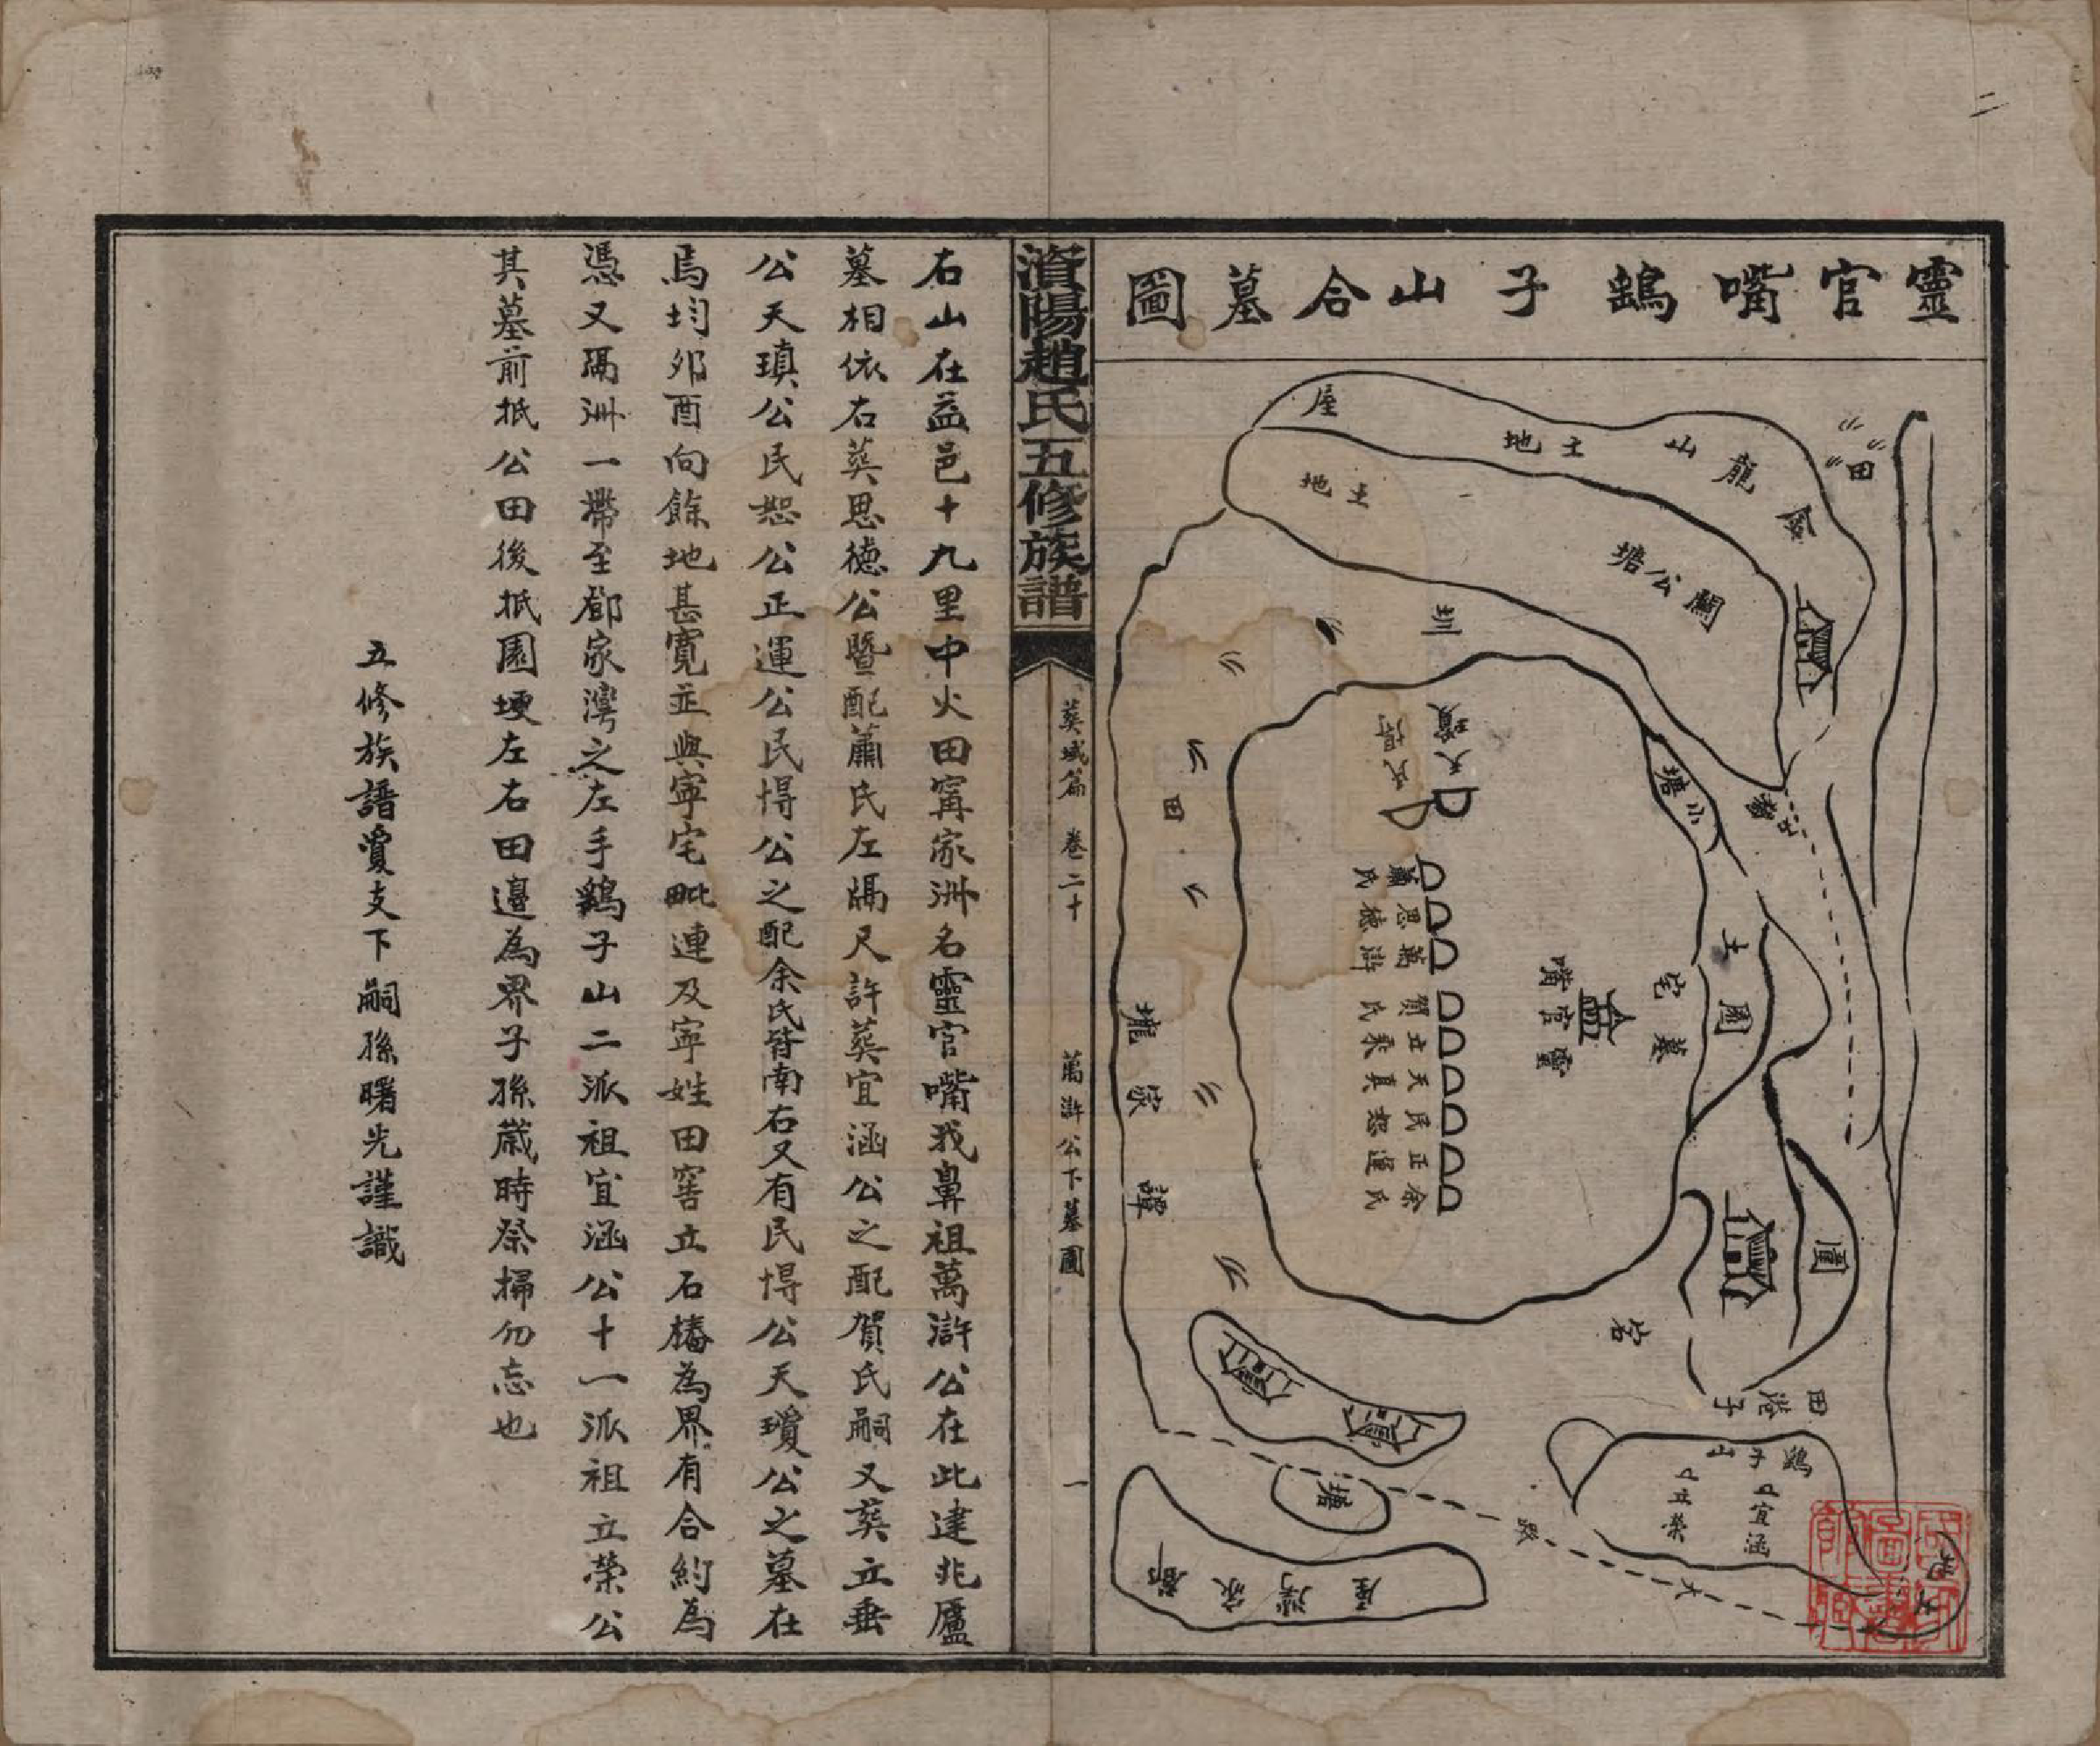 靈官嘴鵝子山合墓圖
田
金龍山
土地
屋
土地
關公塘
圳
小塘
天瓊
土園
宅墓
靈官嘴
蕭氏
思德
萬滸
賀氏
立乘
天真
民恕
正運
余氏
田
譚家壠
園
岩
田
港子
鵝子山
宜涵
立榮
塘
大路
鄧家灣屋
資陽趙氏五修族譜
塟域篇 卷二十 萬滸公下墓圖 一
右山在益邑十九里中火田甯家洲名靈官嘴我鼻祖萬滸公在此建兆廬
墓相依右塟思德公暨配蕭氏左隔尺許塟宜涵公之配賀氏嗣又塟立垂
公天瑱公民恕公正運公民愇公之配余氏皆南右又有民愇公天瓊公之墓在
焉均夘酉向餘地甚寬並與寧宅毗連及寧姓田窖立石樁為界有合約為
憑又隔洲一帶至鄧家灣之左手鵝子山二派祖宜涵公十一派祖立榮公
其墓前抵公田後抵園埂左右田邊為界子孫歲時祭掃勿忘也
五修族譜瓊支下嗣孫曙光謹識